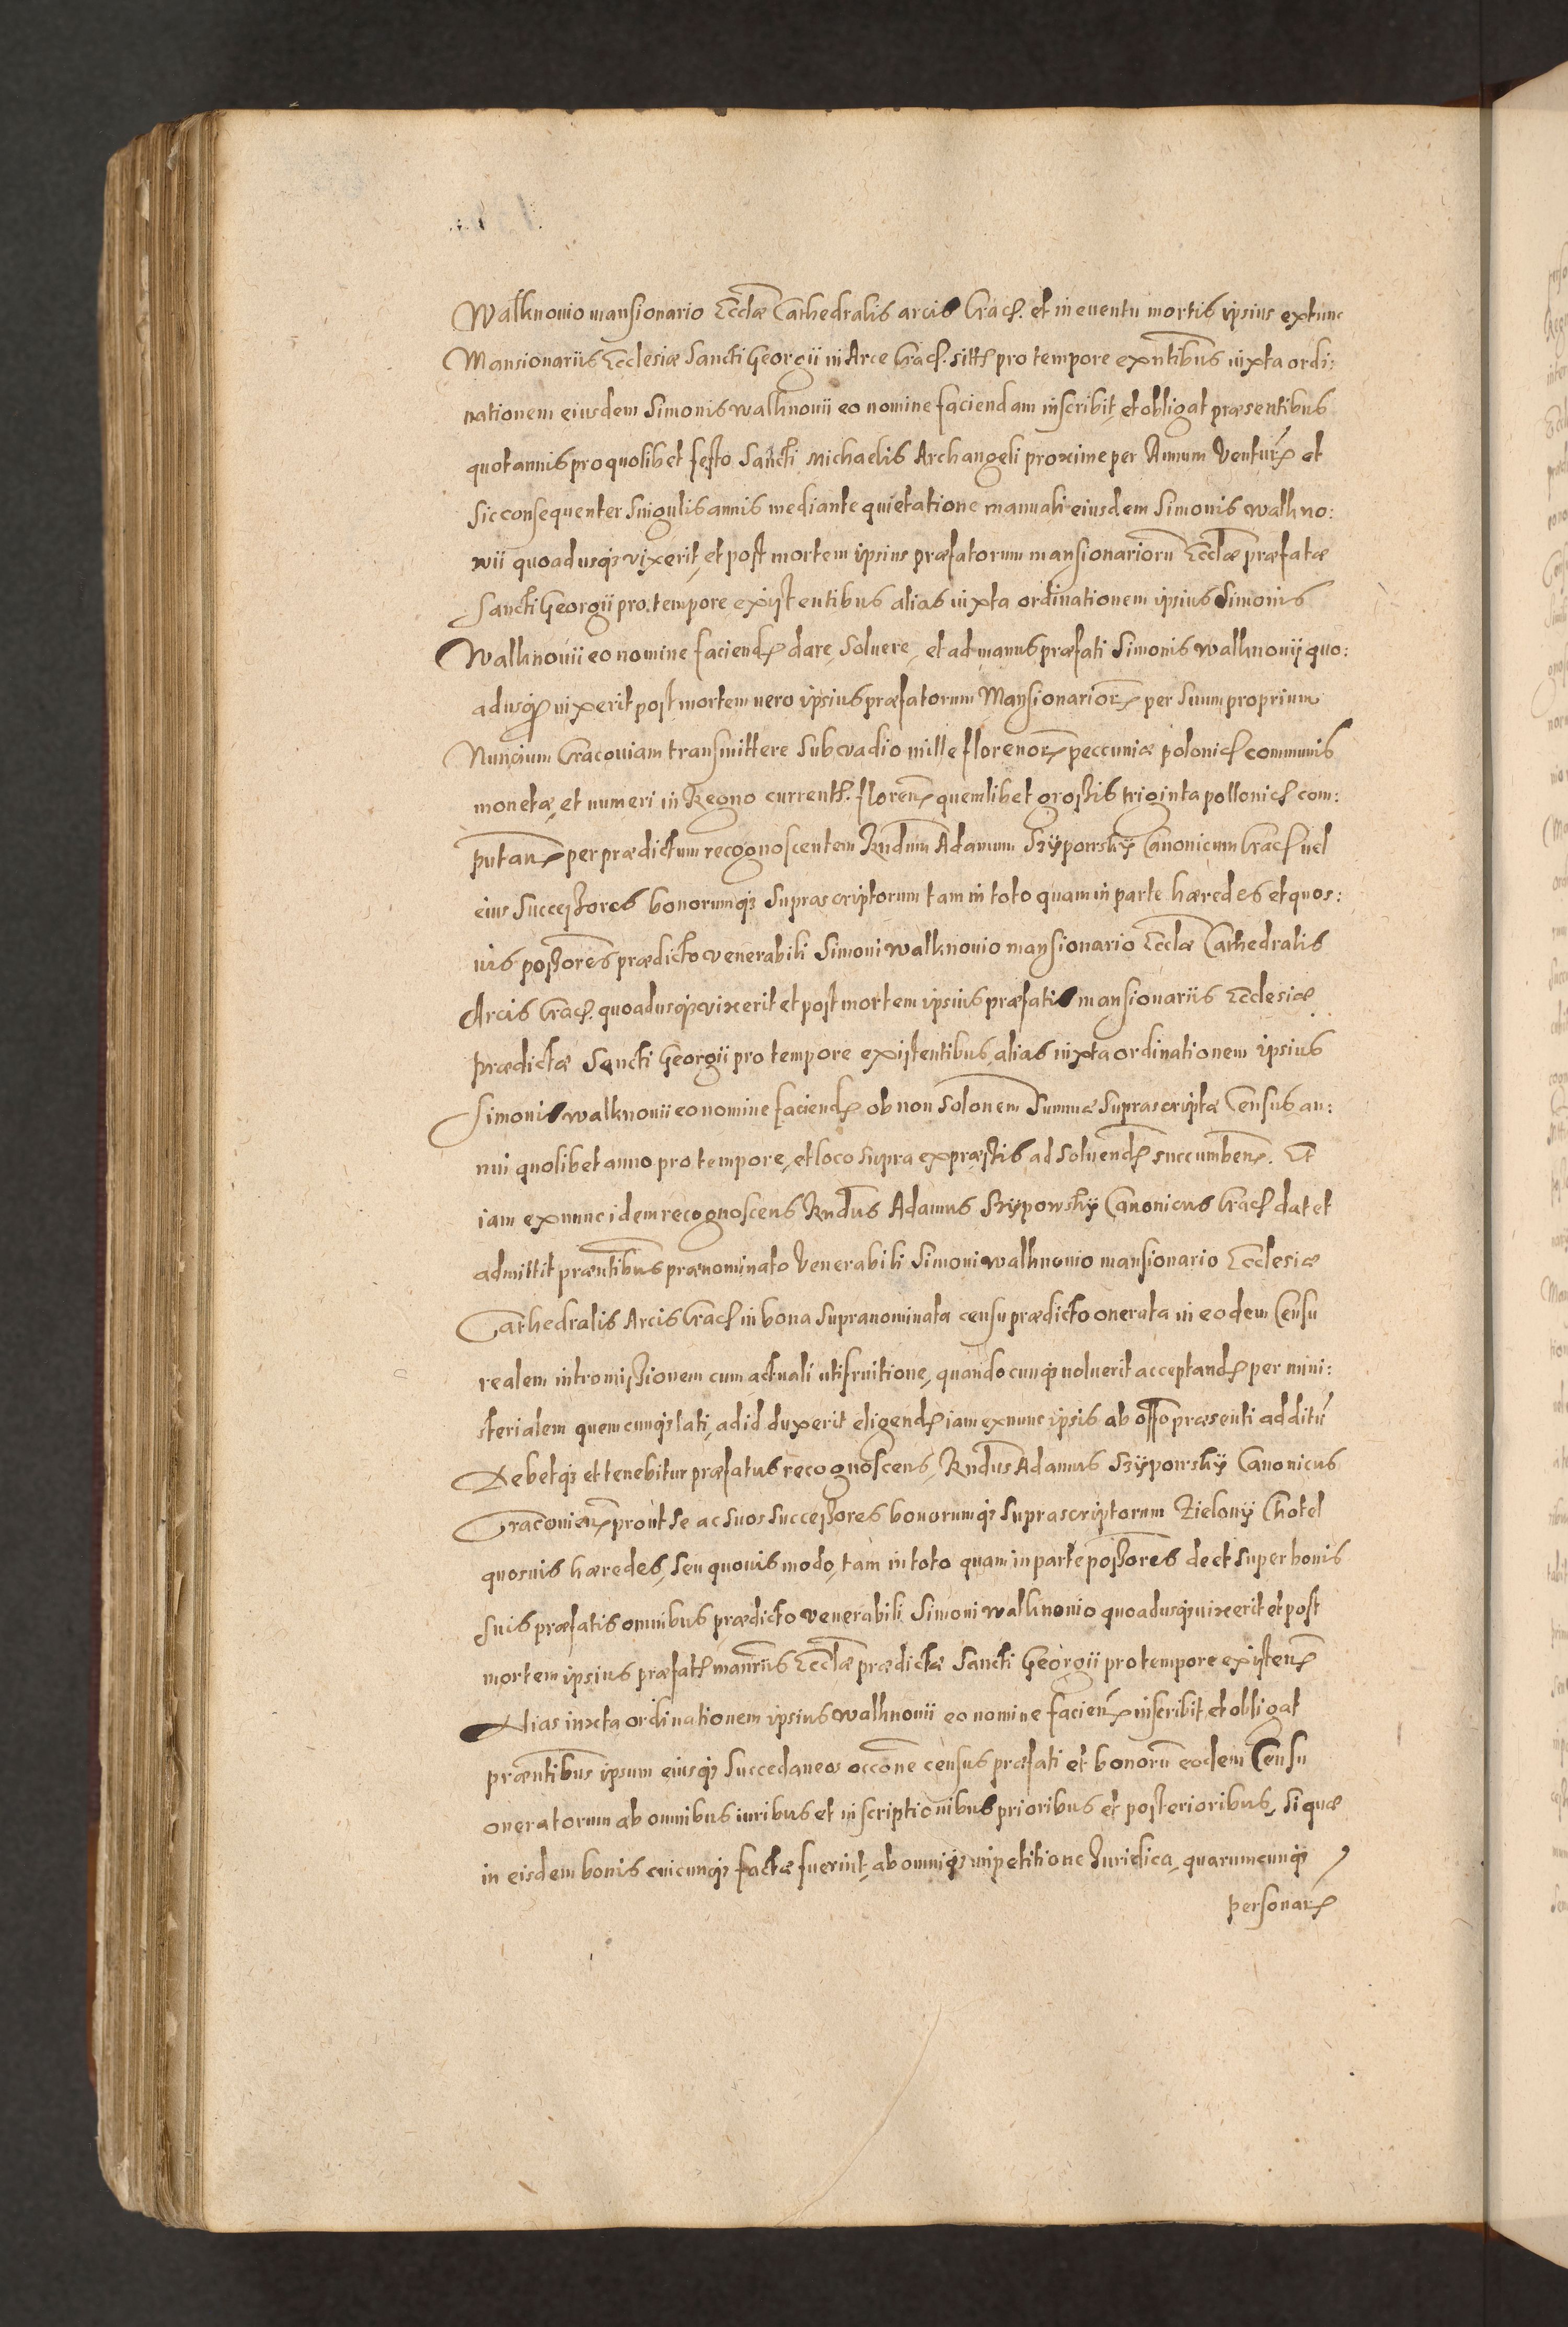 Walknouio mansionario Eccłae Cathedralis arcis Crac. et in euentu mortis ipsius extunc
Mansionariis Ecclesiæ Sancti Georgii in Arce Crac. sitt. pro tempore exntibus iuxta ordi:
nationem eiusdem Simonis walknouii eo nomine faciendam inscribit, et obligat præsentibus
quotannis pro quolibet festo Sancti Michaelis Archangeli proxime per Annum Ventur. et
sic consequenter singulis annis mediante quietatione manuali eiusdem Simonis walkno:
wii quoadusq; vixerit, et post mortem ipsius præfatorum mansionarioru Eccłæ præfatæ
Sancti Georgii pro tempore existentibus alias iuxta ordinationem ipsius Simonis
Walknouii eo nomine faciend. dare, soluere, et ad manus præfati Simonis walknouij quo:
adusq; uixerit post mortem uero ipsius præfatorum Mansionarior. per suum proprium
Nuncium Cracouiam transmittere sub vadio mille florenor. peccuniæ polonic. communis
monetæ, et numeri in Regno current. floren. quemlibet grossis triginta pollonic. com:
putan. per prædictum recognoscentem Rndum Adamum Szijpowskij Canonicum Crac. uel
eius successores bonorumq; suprascriptorum tam in toto quam in parte hæredes et quos:
uis possores prædicto venerabili Simoni walknouio mansionario Eccłæ Cathedralis
Arcis Crac. quoadusq; vixerit et post mortem ipsius præfatis mansionariis Ecclesiæ
prædictæ Sancti Georgii pro tempore existentibus, alias iuxta ordinationem ipsius
Simonis walknouii eo nomine faciend. ob non solonem summæ suprascriptæ Census an:
nui quolibet anno pro tempore, et loco supra expræstis ad soluend. succumben. Et
iam exnunc idem recognoscens Rndus Adamus Szijpowskij Canonicus Crac. dat et
admittit præntibus prænominato Venerabili Simoni walknouio mansionario Ecclesiæ
Cathedralis Arcis Crac. in bona supranominata censu prædicto onerata in eodem Censu
realem intromissionem cum actuali utifruitione, quandocunq; uoluerit acceptand. per mini:
sterialem quemcunq; lati, ad id duxerit eligend. iam exnunc ipsis ab offo præsenti additu
Debetq; et tenebitur præfatus recognoscens, Rndus Adamus Szijpowskij Canonicus
Cracouien. prout se ac suos successores bonorumq; suprascriptorum Zielonij Chotel
quosuis hæredes, seu quouis modo, tam in toto quam in parte possores de et super bonis
suis præfatis omnibus prædicto venerabili Simoni walknouio quoadusq; uixerit et post
mortem ipsius præfat. manriis Eccłæ prædictæ Sancti Georgii pro tempore existen.
Alias iuxta ordinationem ipsius walknouii eo nomine facien. inscribit, et obligat
præntibus ipsum eiusq; succedaneos occone census præfati et bonoru eodem Censu
oneratorum ab omnibus iuribus et inscriptionibus prioribus et posterioribus, si quæ
in eisdem bonis cuicunq; factæ fuerint, ab omniq; impetitione Juridica, quarumcunq;
personar.